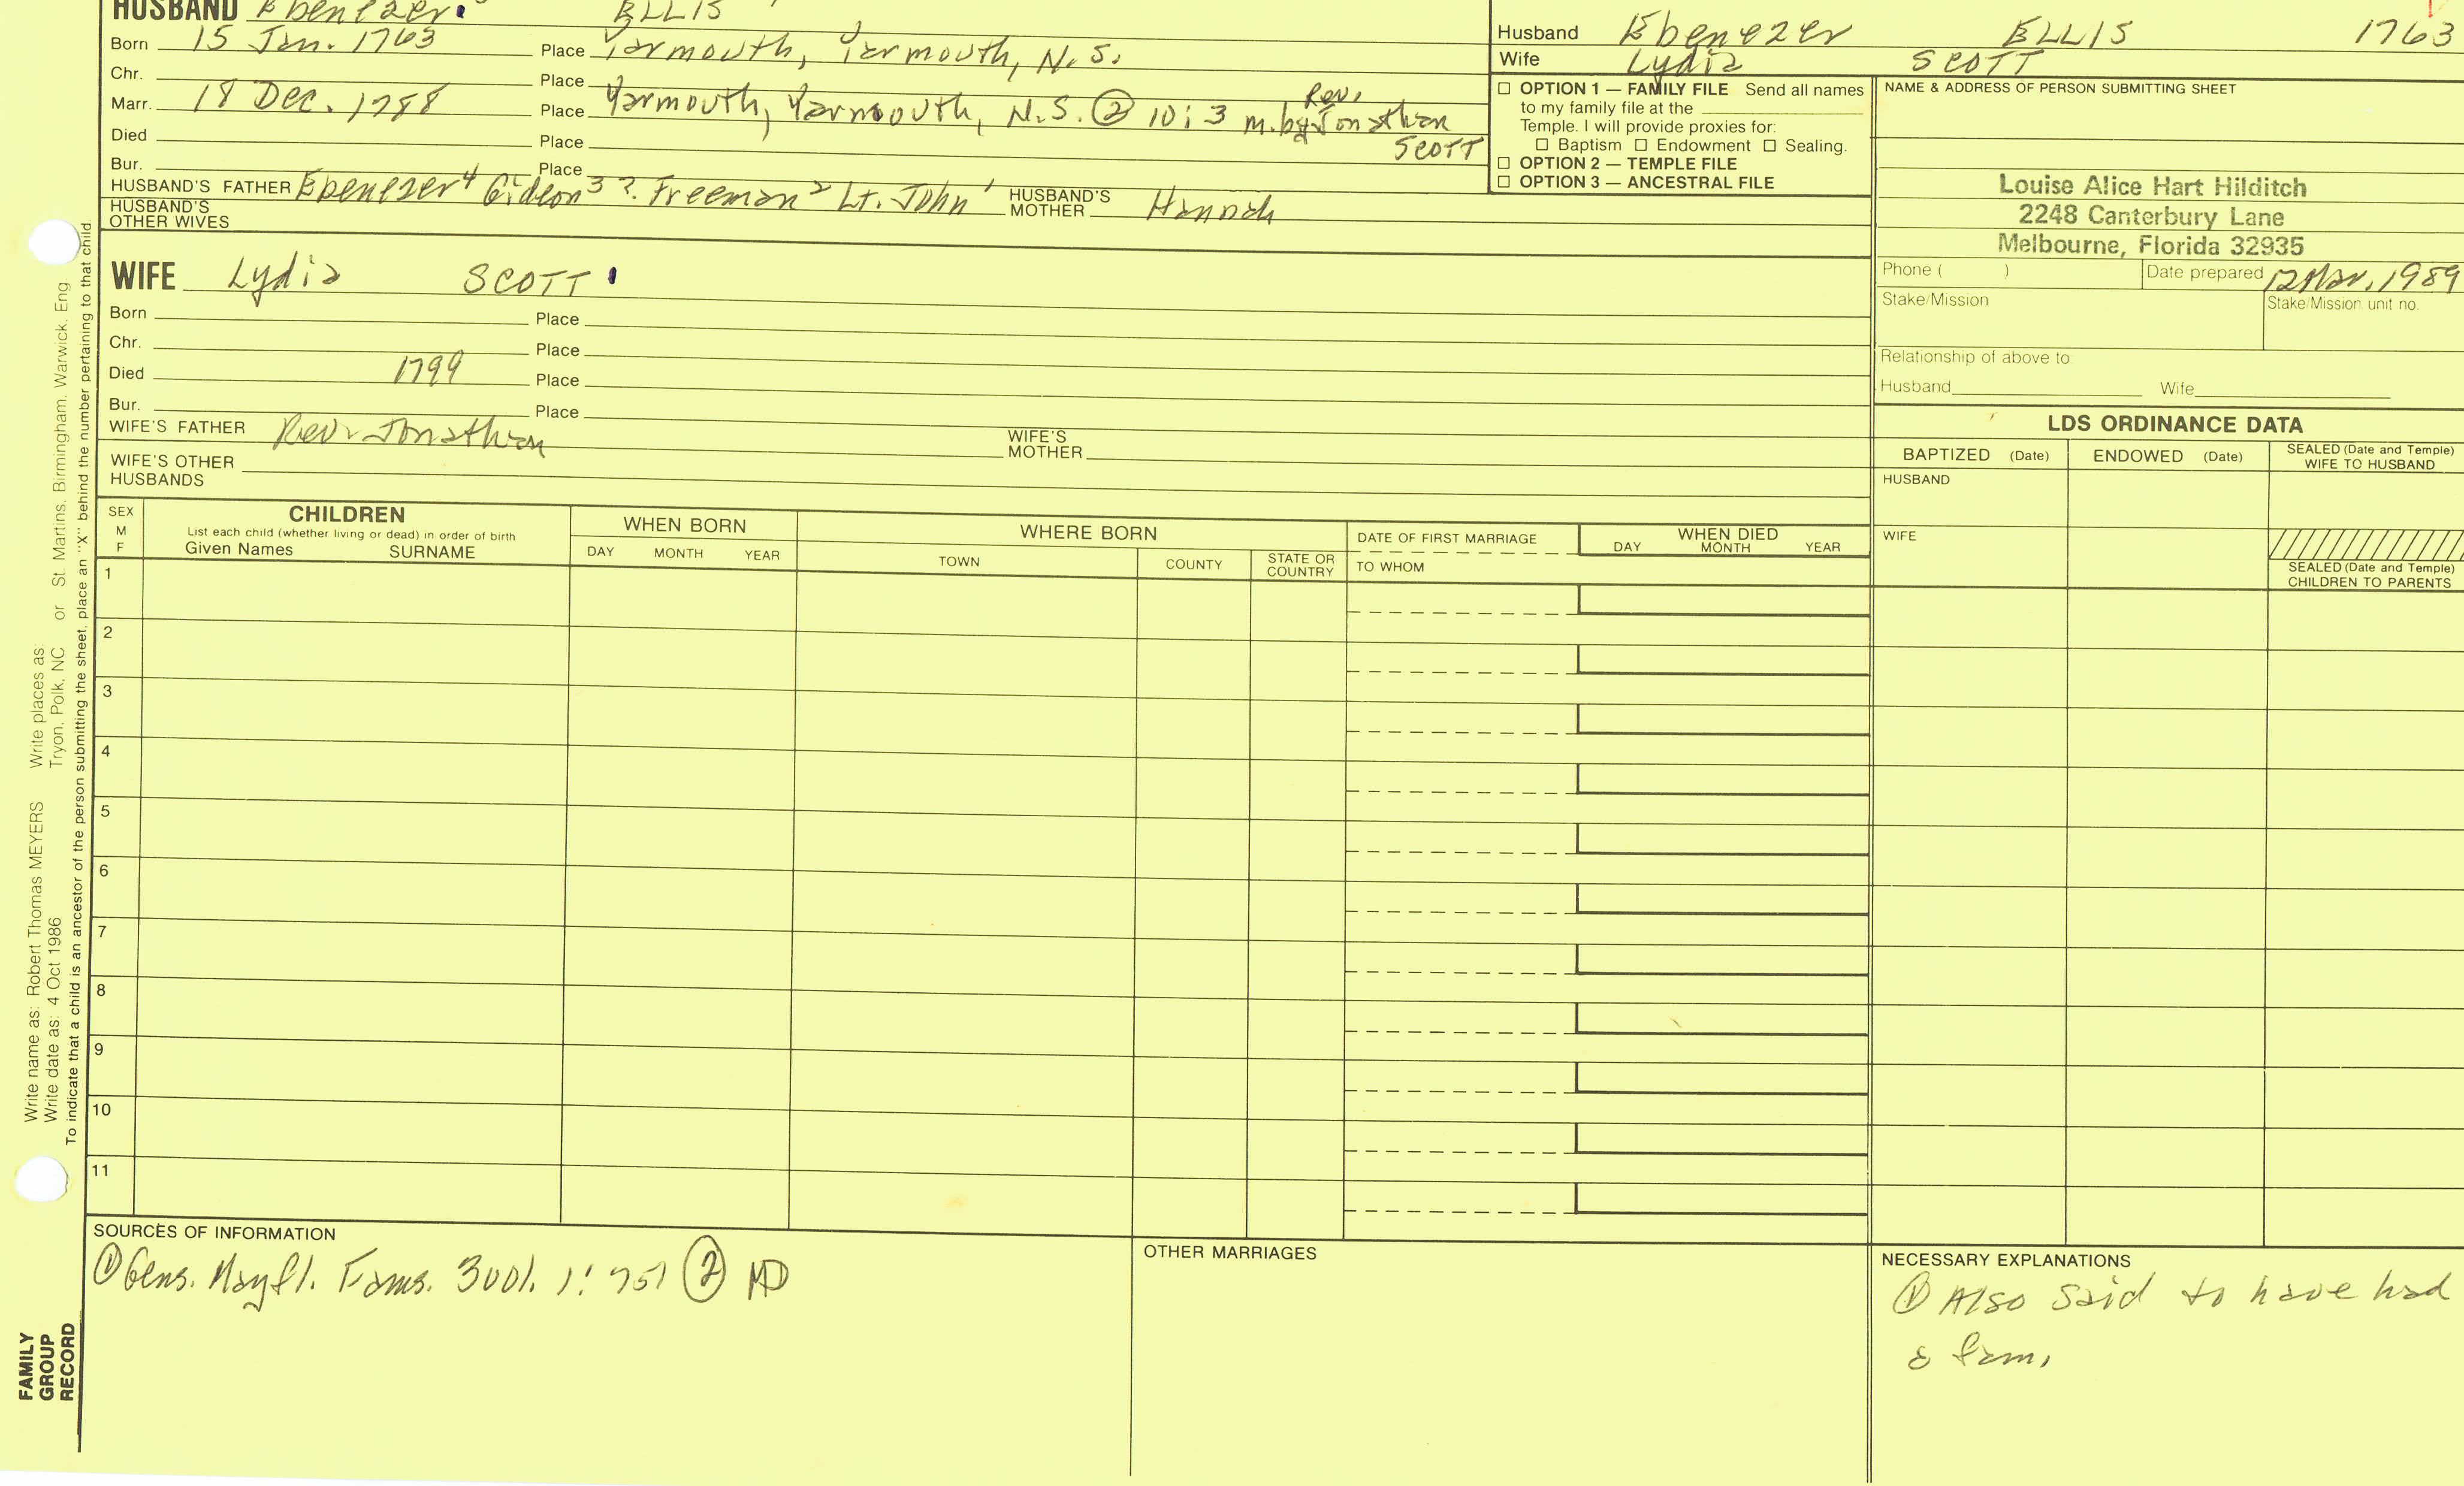 HUSBAND Ebenezer ELLIS
Born 15 Jan. 1763 Place Yarmouth, Yarmouth, N.S.
Chr. Place
Marr. 18 Dec. 1788 Place Yarmouth, Yarmouth, N.S. ② 10:3 m. by Rev. Jonathan SCOTT
Died Place
Bur. Place
HUSBAND'S FATHER Ebenezer⁴ Gideon³ ?. Freeman² Lt. John¹ HUSBAND'S MOTHER Hannah
HUSBAND'S OTHER WIVES
WIFE Lydia SCOTT
Born Place
Chr. Place
Died 1799 Place
Bur. Place
WIFE'S FATHER Rev. Jonathan WIFE'S MOTHER
WIFE'S OTHER HUSBANDS
Husband Ebenezer ELLIS 1763
Wife Lydia SCOTT
☐ OPTION 1 — FAMILY FILE Send all names
to my family file at the
Temple. I will provide proxies for:
☐ Baptism ☐ Endowment ☐ Sealing.
☐ OPTION 2 — TEMPLE FILE
☐ OPTION 3 — ANCESTRAL FILE
NAME & ADDRESS OF PERSON SUBMITTING SHEET
Louise Alice Hart Hilditch
2248 Canterbury Lane
Melbourne, Florida 32935
Phone ( ) Date prepared 12 Mar. 1989
Stake/Mission Stake/Mission unit no.
Relationship of above to
Husband Wife
LDS ORDINANCE DATA
BAPTIZED (Date) ENDOWED (Date) SEALED (Date and Temple) WIFE TO HUSBAND
HUSBAND
WIFE
SEALED (Date and Temple)
CHILDREN TO PARENTS
SEX M F CHILDREN WHEN BORN WHERE BORN DATE OF FIRST MARRIAGE WHEN DIED
List each child (whether living or dead) in order of birth
Given Names SURNAME DAY MONTH YEAR TOWN COUNTY STATE OR COUNTRY TO WHOM DAY MONTH YEAR
1
2
3
4
5
6
7
8
9
10
11
SOURCES OF INFORMATION
① Gens. Mayfl. Fams. 3vol. 1:751 ② MD
OTHER MARRIAGES
NECESSARY EXPLANATIONS
① Also said to have had
a fam.
Write name as: Robert Thomas MEYERS Write places as:
Write date as: 4 Oct 1986 Tryon, Polk, NC or St. Martins, Birmingham, Warwick, Eng.
To indicate that a child is an ancestor of the person submitting the sheet, place an "X" behind the number pertaining to that child.
FAMILY
GROUP
RECORD